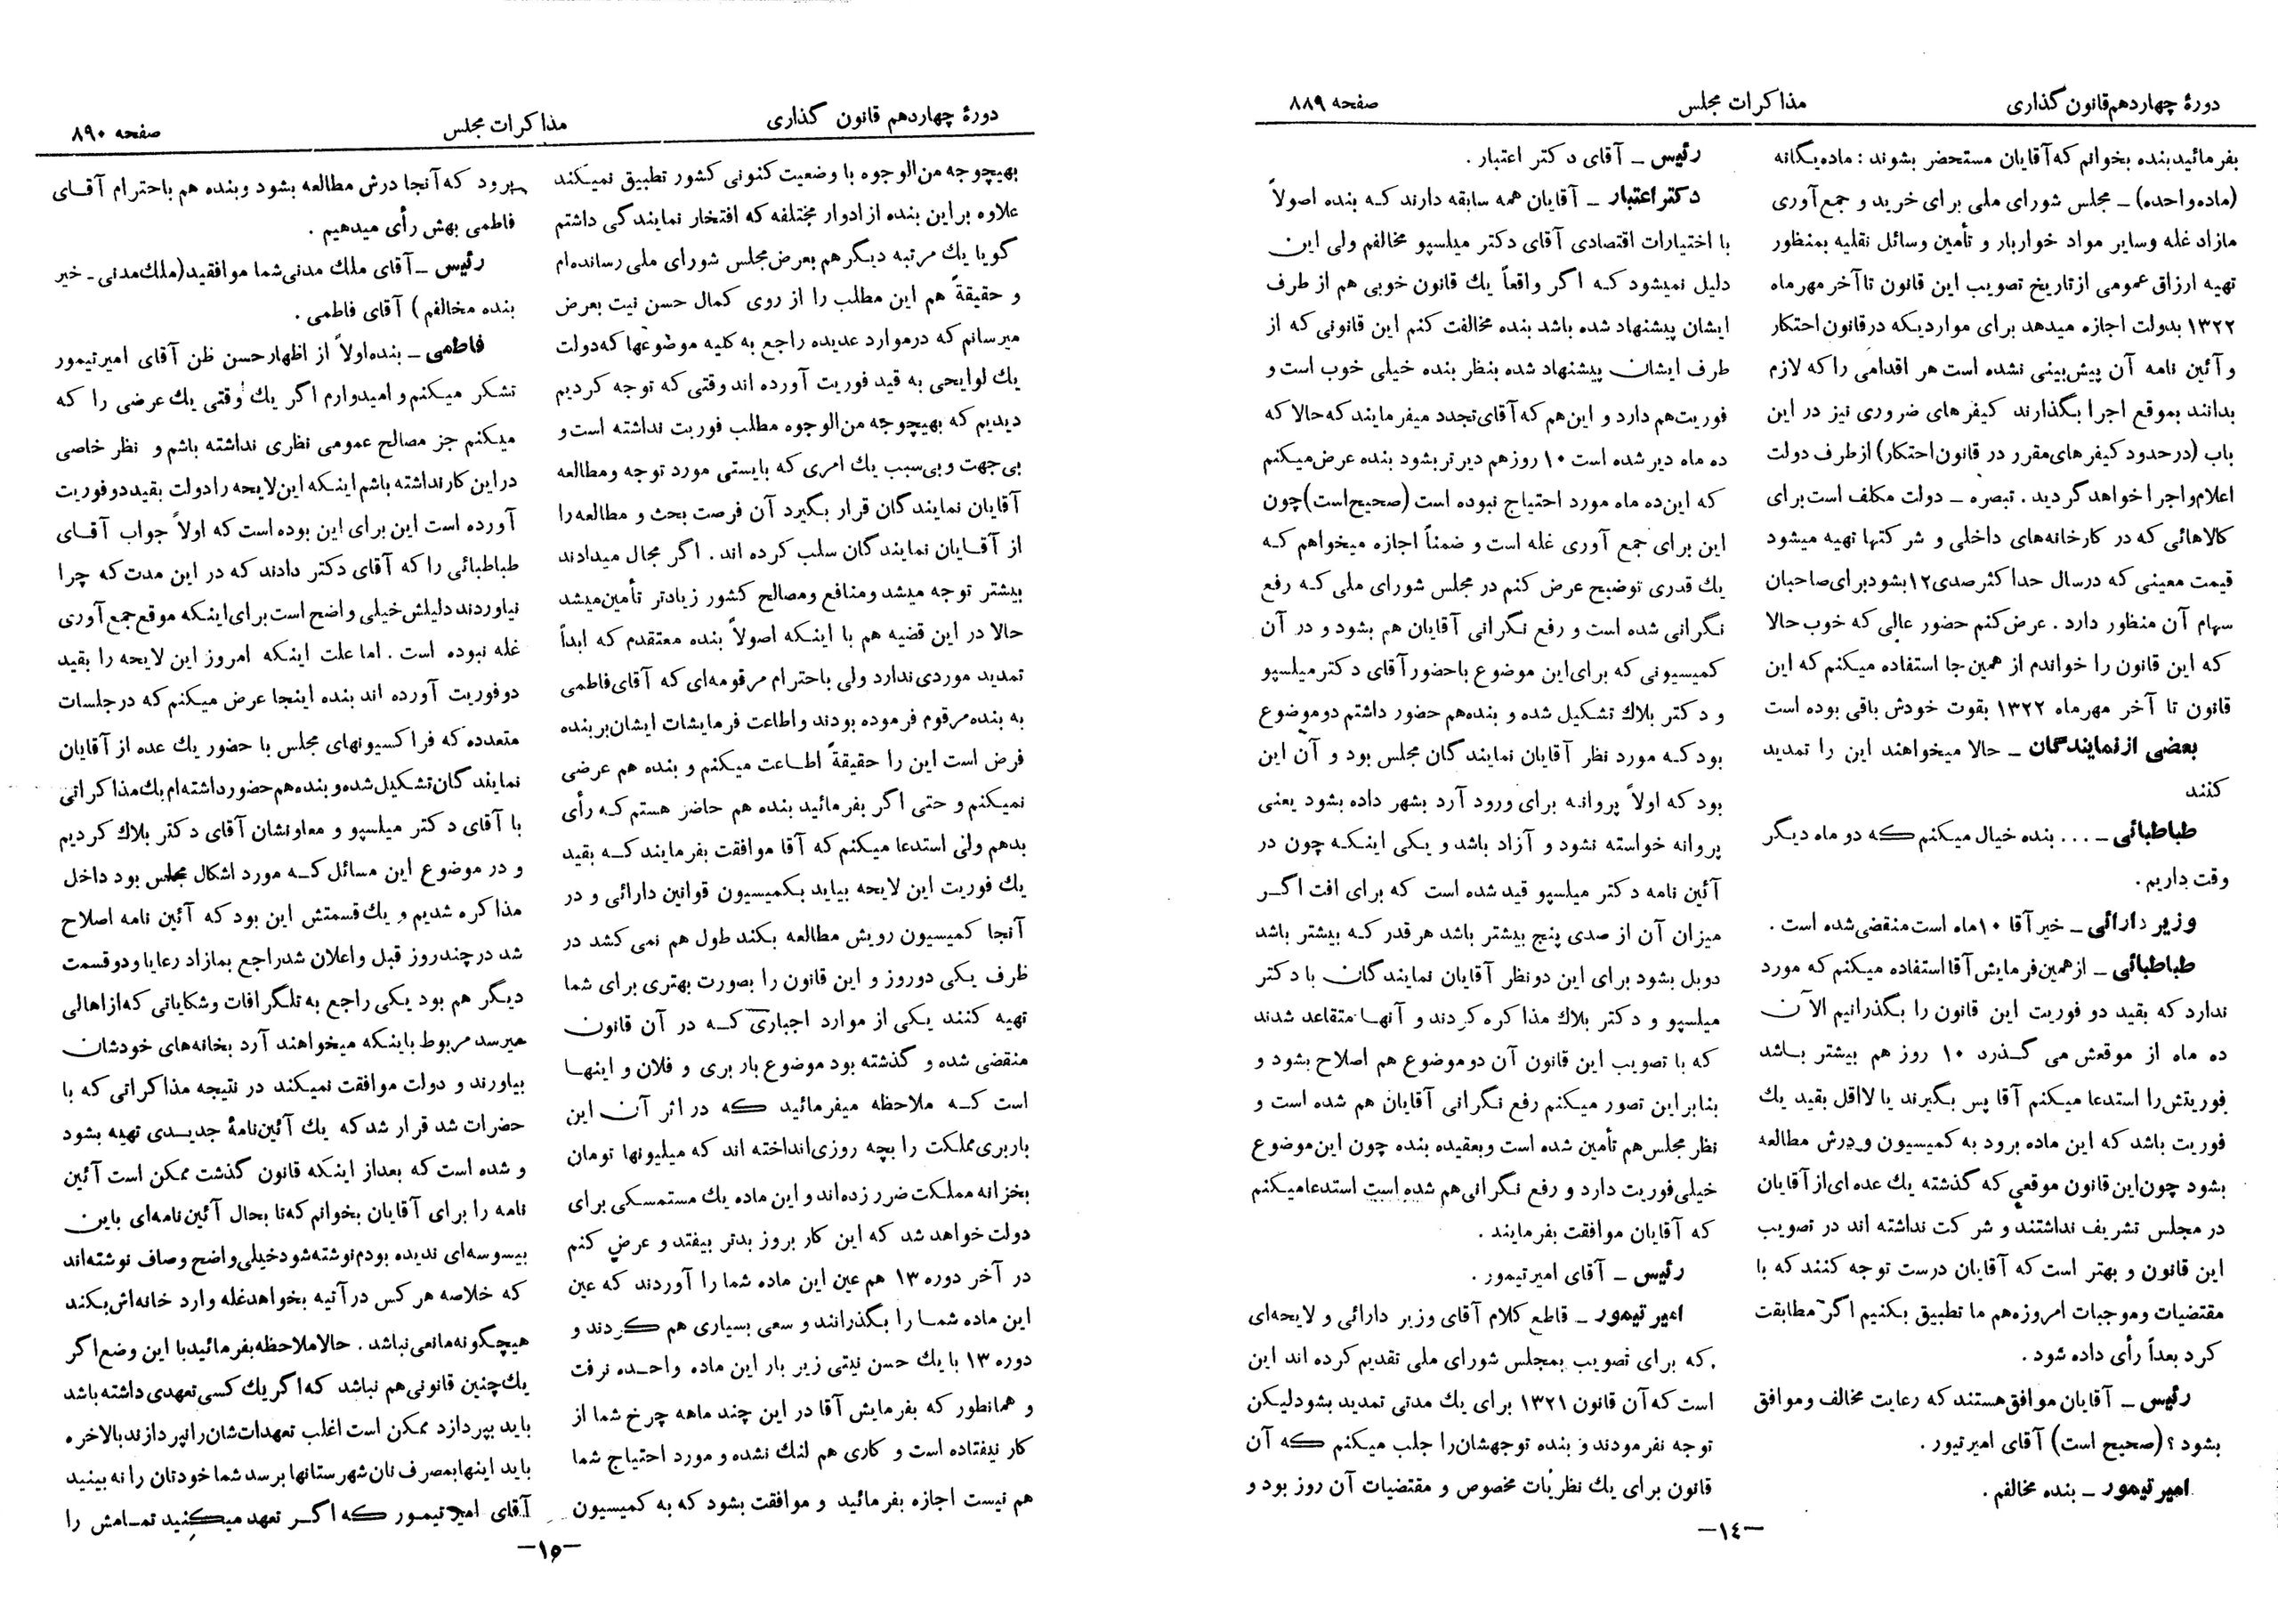 دورهٔ چهاردهم قانون گذاری
مذاکرات مجلس
صفحه ۸۸۹
بفرمائید بنده بخوانم که آقایان مستحضر بشوند : ماده یگانه
(ماده واحده) ـ مجلس شورای ملی برای خرید و جمع آوری
مازاد غله وسایر مواد خواربار و تأمین وسائل نقلیه بمنظور
تهیه ارزاق عمومی از تاریخ تصویب این قانون تا آخر مهرماه
۱۳۲۲ بدولت اجازه میدهد برای مواردیکه در قانون احتکار
و آئین نامه آن پیش بینی نشده است هر اقدامی را که لازم
بدانند بموقع اجرا بگذارند کیفرهای ضروری نیز در این
باب (در حدود کیفرهای مقرر در قانون احتکار) از طرف دولت
اعلام واجرا خواهد گردید . تبصره ـ دولت مکلف است برای
کالاهائی که در کارخانه‌های داخلی و شرکتها تهیه میشود
قیمت معینی که درسال حداکثر صدی ۱۲ بشود برای صاحبان
سهام آن منظور دارد . عرض کنم حضور عالی که خوب حالا
که این قانون را خواندم از همین جا استفاده میکنم که این
قانون تا آخر مهرماه ۱۳۲۲ بقوت خودش باقی بوده است
بعضی از نمایندگان ـ حالا میخواهند این را تمدید
کنند
طباطبائی ـ ... بنده خیال میکنم که دو ماه دیگر
وقت داریم .
وزیر دارائی ـ خیر آقا ۱۰ ماه است منقضی شده است .
طباطبائی ـ از همین فرمایش آقا استفاده میکنم که مورد
ندارد که بقید دو فوریت این قانون را بگذرانیم الآن
ده ماه از موقعش می گذرد ۱۰ روز هم بیشتر باشد
فوریتش را استدعا میکنم آقا پس بگیرند یا لااقل بقید یك
فوریت باشد که این ماده برود به کمیسیون ودرش مطالعه
بشود چون این قانون موقعی که گذشته یك عده ای از آقایان
در مجلس تشریف نداشتند و شرکت نداشته اند در تصویب
این قانون و بهتر است که آقایان درست توجه کنند که با
مقتضیات وموجبات امروزه هم ما تطبیق بکنیم اگر مطابقت
کرد بعداً رأی داده شود .
رئیس ـ آقایان موافق هستند که رعایت مخالف وموافق
بشود ؟ (صحیح است) آقای امیرتیور .
امیرتیمور ـ بنده مخالفم .
رئیس ـ آقای دکتر اعتبار .
دکتر اعتبار ـ آقایان همه سابقه دارند که بنده اصولاً
با اختیارات اقتصادی آقای دکتر میلسپو مخالفم ولی این
دلیل نمیشود که اگر واقعاً یك قانون خوبی هم از طرف
ایشان پیشنهاد شده باشد بنده مخالفت کنم این قانونی که از
طرف ایشان پیشنهاد شده بنظر بنده خیلی خوب است و
فوریت هم دارد و این هم که آقای تجدد میفرمایند که حالا که
ده ماه دیر شده است ۱۰ روز هم دیرتر بشود بنده عرض میکنم
که این ده ماه مورد احتیاج نبوده است (صحیح است) چون
این برای جمع آوری غله است و ضمناً اجازه میخواهم که
یك قدری توضیح عرض کنم در مجلس شورای ملی که رفع
نگرانی شده است و رفع نگرانی آقایان هم بشود و در آن
کمیسیونی که برای این موضوع باحضور آقای دکتر میلسپو
و دکتر بلاك تشکیل شده و بنده هم حضور داشتم دو موضوع
بود که مورد نظر آقایان نمایندگان مجلس بود و آن این
بود که اولاً پروانه برای ورود آرد بشهر داده بشود یعنی
پروانه خواسته نشود و آزاد باشد و یکی اینکه چون در
آئین نامه دکتر میلسپو قید شده است که برای افت اگر
میزان آن از صدی پنج بیشتر باشد هرقدر که بیشتر باشد
دوبل بشود برای این دونظر آقایان نمایندگان با دکتر
میلسپو و دکتر بلاك مذاکره کردند و آنها متقاعد شدند
که با تصویب این قانون آن دوموضوع هم اصلاح بشود و
بنابر این تصور میکنم رفع نگرانی آقایان هم شده است و
نظر مجلس هم تأمین شده است وبعقیده بنده چون این موضوع
خیلی فوریت دارد و رفع نگرانی هم شده است استدعا میکنم
که آقایان موافقت بفرمایند .
رئیس ـ آقای امیرتیمور .
امیرتیمور ـ قاطع کلام آقای وزیر دارائی و لایحه‌ای
که برای تصویب بمجلس شورای ملی تقدیم کرده اند این
است که آن قانون ۱۳۲۱ برای یك مدتی تمدید بشود لیکن
توجه نفرمودند و بنده توجهشان را جلب میکنم که آن
قانون برای یك نظریات مخصوص و مقتضیات آن روز بود و
ـ۱٤ـ
دورهٔ چهاردهم قانون گذاری
مذاکرات مجلس
صفحه ۸۹۰
بهیچوجه من‌الوجوه با وضعیت کنونی کشور تطبیق نمیکند
علاوه براین بنده از ادوار مختلفه که افتخار نمایندگی داشتم
گویا یك مرتبه دیگر هم بعرض مجلس شورای ملی رسانده‌ام
و حقیقةً هم این مطلب را از روی کمال حسن نیت بعرض
میرسانم که درموارد عدیده راجع به کلیه موضوعها که دولت
یك لوایحی به قید فوریت آورده اند وقتی که توجه کردیم
دیدیم که بهیچوجه من‌الوجوه مطلب فوریت نداشته است و
بی جهت و بی‌سبب یك امری که بایستی مورد توجه ومطالعه
آقایان نمایندگان قرار بگیرد آن فرصت بحث و مطالعه را
از آقایان نمایندگان سلب کرده اند . اگر مجال میدادند
بیشتر توجه میشد ومنافع ومصالح کشور زیادتر تأمین میشد
حالا در این قضیه هم با اینکه اصولاً بنده معتقدم که ابداً
تمدید موردی ندارد ولی باحترام مرقومه‌ای که آقای فاطمی
به بنده مرقوم فرموده بودند واطاعت فرمایشات ایشان بر بنده
فرض است این را حقیقةً اطاعت میکنم و بنده هم عرضی
نمیکنم و حتی اگر بفرمائید بنده هم حاضر هستم که رأی
بدهم ولی استدعا میکنم که آقا موافقت بفرمایند که بقید
یك فوریت این لایحه بیاید بکمیسیون قوانین دارائی و در
آنجا کمیسیون رویش مطالعه بکند طول هم نمی کشد در
ظرف یکی دوروز و این قانون را بصورت بهتری برای شما
تهیه کنند یکی از موارد اجباری که در آن قانون
منقضی شده و گذشته بود موضوع باربری و فلان و اینها
است که ملاحظه میفرمائید که در اثر آن این
باربری مملکت را بچه روزی انداخته اند که میلیونها تومان
بخزانه مملکت ضرر زده‌اند و این ماده یك مستمسکی برای
دولت خواهد شد که این کار بروز بدتر بیفتد و عرض کنم
در آخر دوره ۱۳ هم عین این ماده شما را آوردند که عین
این ماده شما را بگذرانند و سعی بسیاری هم کردند و
دوره ۱۳ با یك حسن نیتی زیر بار این ماده واحده نرفت
و همانطور که بفرمایش آقا در این چند ماهه چرخ شما از
کار نیفتاده است و کاری هم لنك نشده و مورد احتیاج شما
هم نیست اجازه بفرمائید و موافقت بشود که به کمیسیون
برود که آنجا درش مطالعه بشود وبنده هم باحترام آقای
فاطمی بهش رأی میدهیم .
رئیس ـ آقای ملك مدنی شما موافقید (ملك مدنی ـ خیر
بنده مخالفم) آقای فاطمی .
فاطمی ـ بنده اولاً از اظهار حسن ظن آقای امیرتیمور
تشکر میکنم و امیدوارم اگر یك وقتی یك عرضی را که
میکنم جز مصالح عمومی نظری نداشته باشم و نظر خاصی
در این کار نداشته باشم اینکه این لایحه را دولت بقید دو فوریت
آورده است این برای این بوده است که اولاً جواب آقای
طباطبائی را که آقای دکتر دادند که در این مدت که چرا
نیاوردند دلیلش خیلی واضح است برای اینکه موقع جمع آوری
غله نبوده است . اما علت اینکه امروز این لایحه را بقید
دو فوریت آورده اند بنده اینجا عرض میکنم که در جلسات
متعدده که فراکسیونهای مجلس با حضور یك عده از آقایان
نمایندگان تشکیل شده و بنده هم حضور داشته‌ام یك مذاکراتی
با آقای دکتر میلسپو و معاونشان آقای دکتر بلاك کردیم
و در موضوع این مسائل که مورد اشکال مجلس بود داخل
مذاکره شدیم و یك قسمتش این بود که آئین نامه اصلاح
شد در چند روز قبل و اعلان شد راجع بمازاد رعایا و دو قسمت
دیگر هم بود یکی راجع به تلگرافات وشکایاتی که از اهالی
میرسد مربوط باینکه میخواهند آرد بخانه‌های خودشان
بیاورند و دولت موافقت نمیکند در نتیجه مذاکراتی که با
حضرات شد قرار شد که یك آئین‌نامهٔ جدیدی تهیه بشود
و شده است که بعداز اینکه قانون گذشت ممکن است آئین
نامه را برای آقایان بخوانم که تا بحال آئین نامه‌ای باین
بیسوسه‌ای ندیده بودم نوشته شود خیلی واضح وصاف نوشته‌اند
که خلاصه هر کس در آتیه بخواهد غله وارد خانه‌اش بکند
هیچگونه مانعی نباشد . حالا ملاحظه بفرمائید با این وضع اگر
یك چنین قانونی هم نباشد که اگر یك کسی تعهدی داشته باشد
باید بپردازد ممکن است اغلب تعهدات‌شان را نپردازند بالاخره
باید اینها بمصرف نان شهرستانها برسد شما خودتان را نه بینید
آقای امیرتیمور که اگر تعهد میکنید تمامش را
ـ۱۵ـ